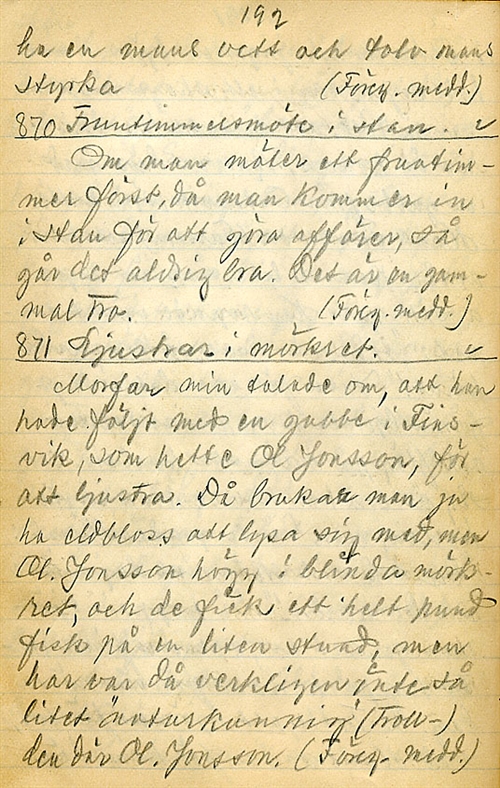 192
ha en mans vett och tolv mans
styrka (Föreg. medd.)
870 Fruntimmersmöte i stan. v
Om man möter ett fruntim-
mer först, då man kommer in
i stan för att göra affärer, så
går det aldrig bra. Det är en gam-
mal tro. (Föreg. medd.)
871 Ljustrar i mörkret. v
Morfar min talade om, att han
hade följt med en gubbe i Fins-
vik, som hette Ol Jonsson, för
att ljustra. Då brukar man ju
ha eldbloss att lysa sig med, men
Ol. Jonsson högg i blinda mörk-
ret, och de fick ett helt pund
fisk på en liten stund, men
har var då verkligen inte så
litet "naturkunnig" (Troll-)
den där Ol. Jonsson. (Föreg. medd.)